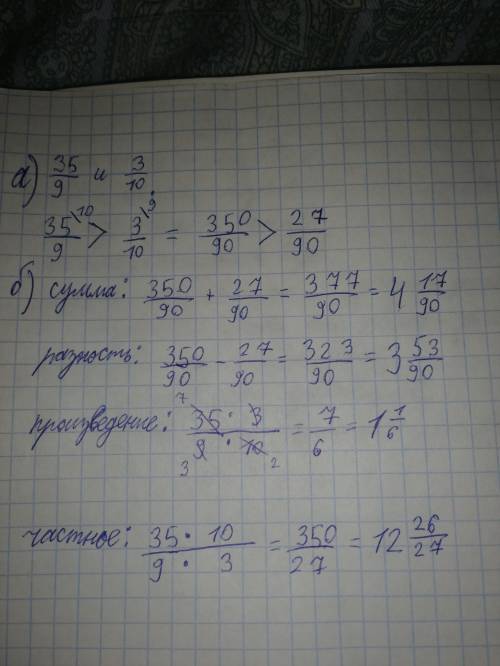 а) 35/9 и 3/10.
35\10/9 > 3\9/10 = 350/90 > 27/90
б) сумма: 350/90 + 27/90 = 377/90 = 4 17/90
разность: 350/90 - 27/90 = 323/90 = 3 53/90
произведение: 7 35 · 3 / 3 9 · 10 2 = 7/6 = 1 1/6
частное: 35 · 10 / 9 · 3 = 350/27 = 12 26/27